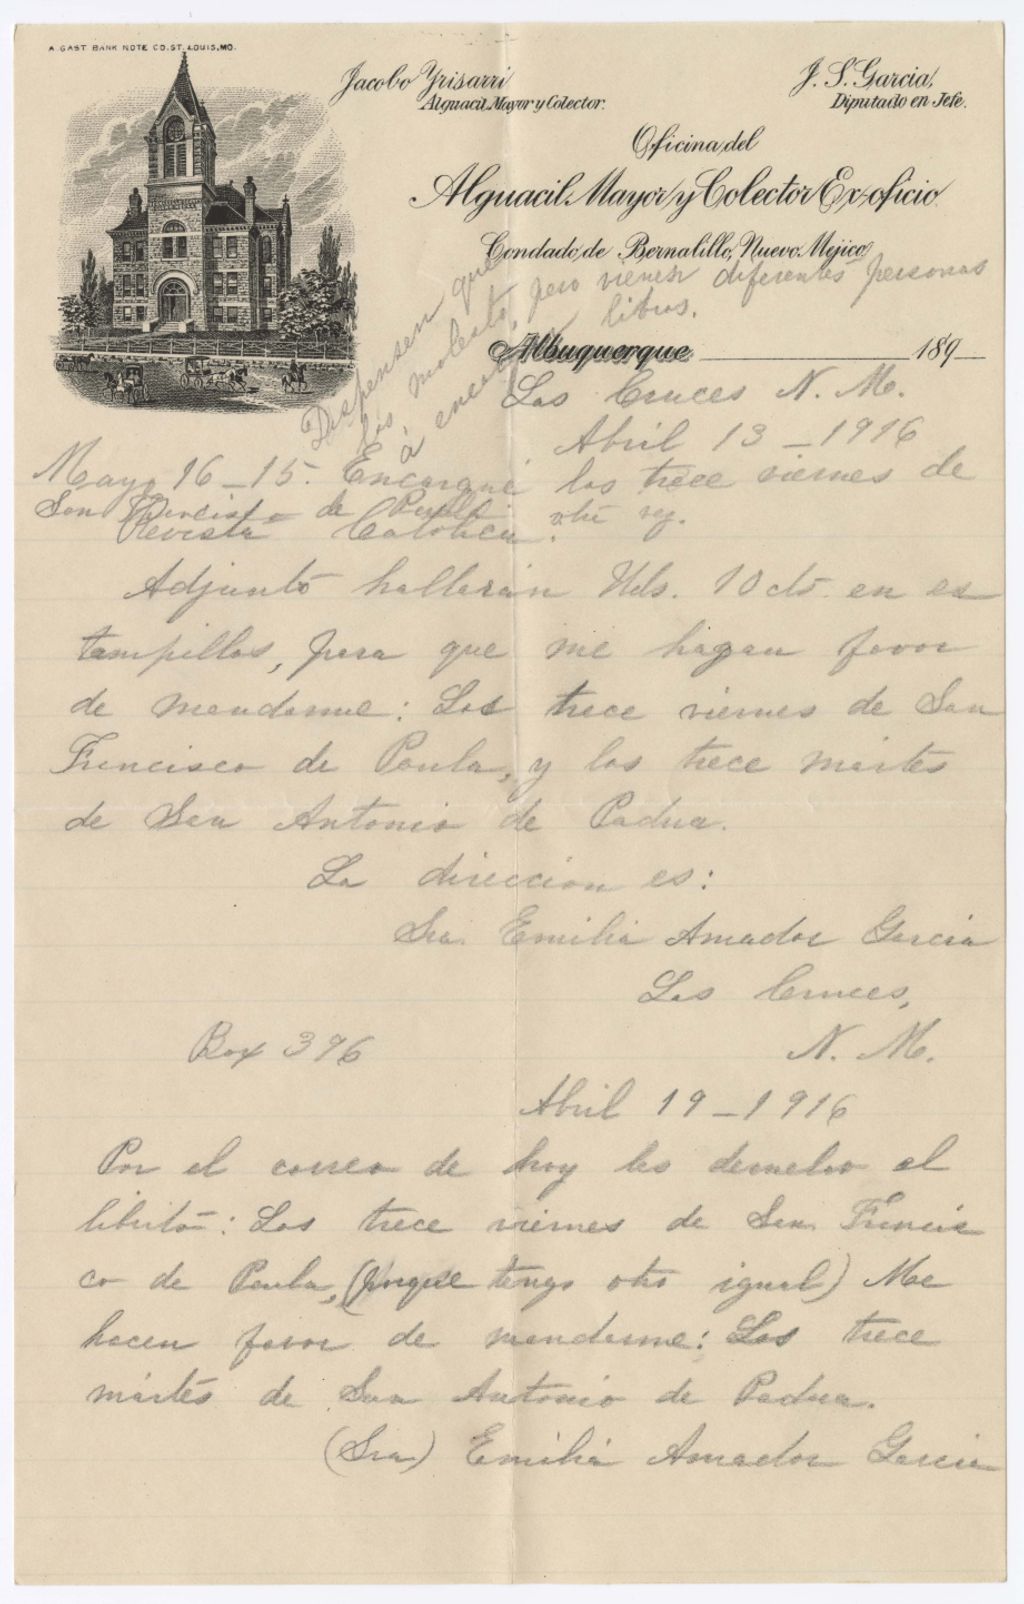 A. GAST BANK NOTE CO. ST. LOUIS, MO.
Jacobo Yrisarri
Alguacil Mayor y Colector.
J. S. Garcia,
Diputado en Jefe.
Oficina del
Alguacil Mayor y Colector Ex-oficio
Condado de Bernalillo, Nuevo Mejico
Dispensen que
los molesto, pero vienen diferentes personas
á encargar libros.
Albuquerque 189
Las Cruces N. M.
Abril 13 _ 1916
Mayo 16 _ 15. Encargué los trece viernes de
San Francisco de Paula otra vez.
Revista Católica.
Adjunto hallarán Uds. 10 cts. en es
tampillas, para que me hagan favor
de mandarme: Los trece viernes de San
Francisco de Paula, y los trece martes
de San Antonio de Padua.
La dirección es:
Sra. Emilia Amador Garcia
Las Cruces,
Box 396 N. M.
Abril 19 _ 1916
Por el correo de hoy les devuelvo el
librito: Los trece viernes de San Francis
co de Paula, (porque tengo otro igual) Me
hacen favor de mandarme: Los trece
martes de San Antonio de Padua.
(Sra) Emilia Amador Garcia